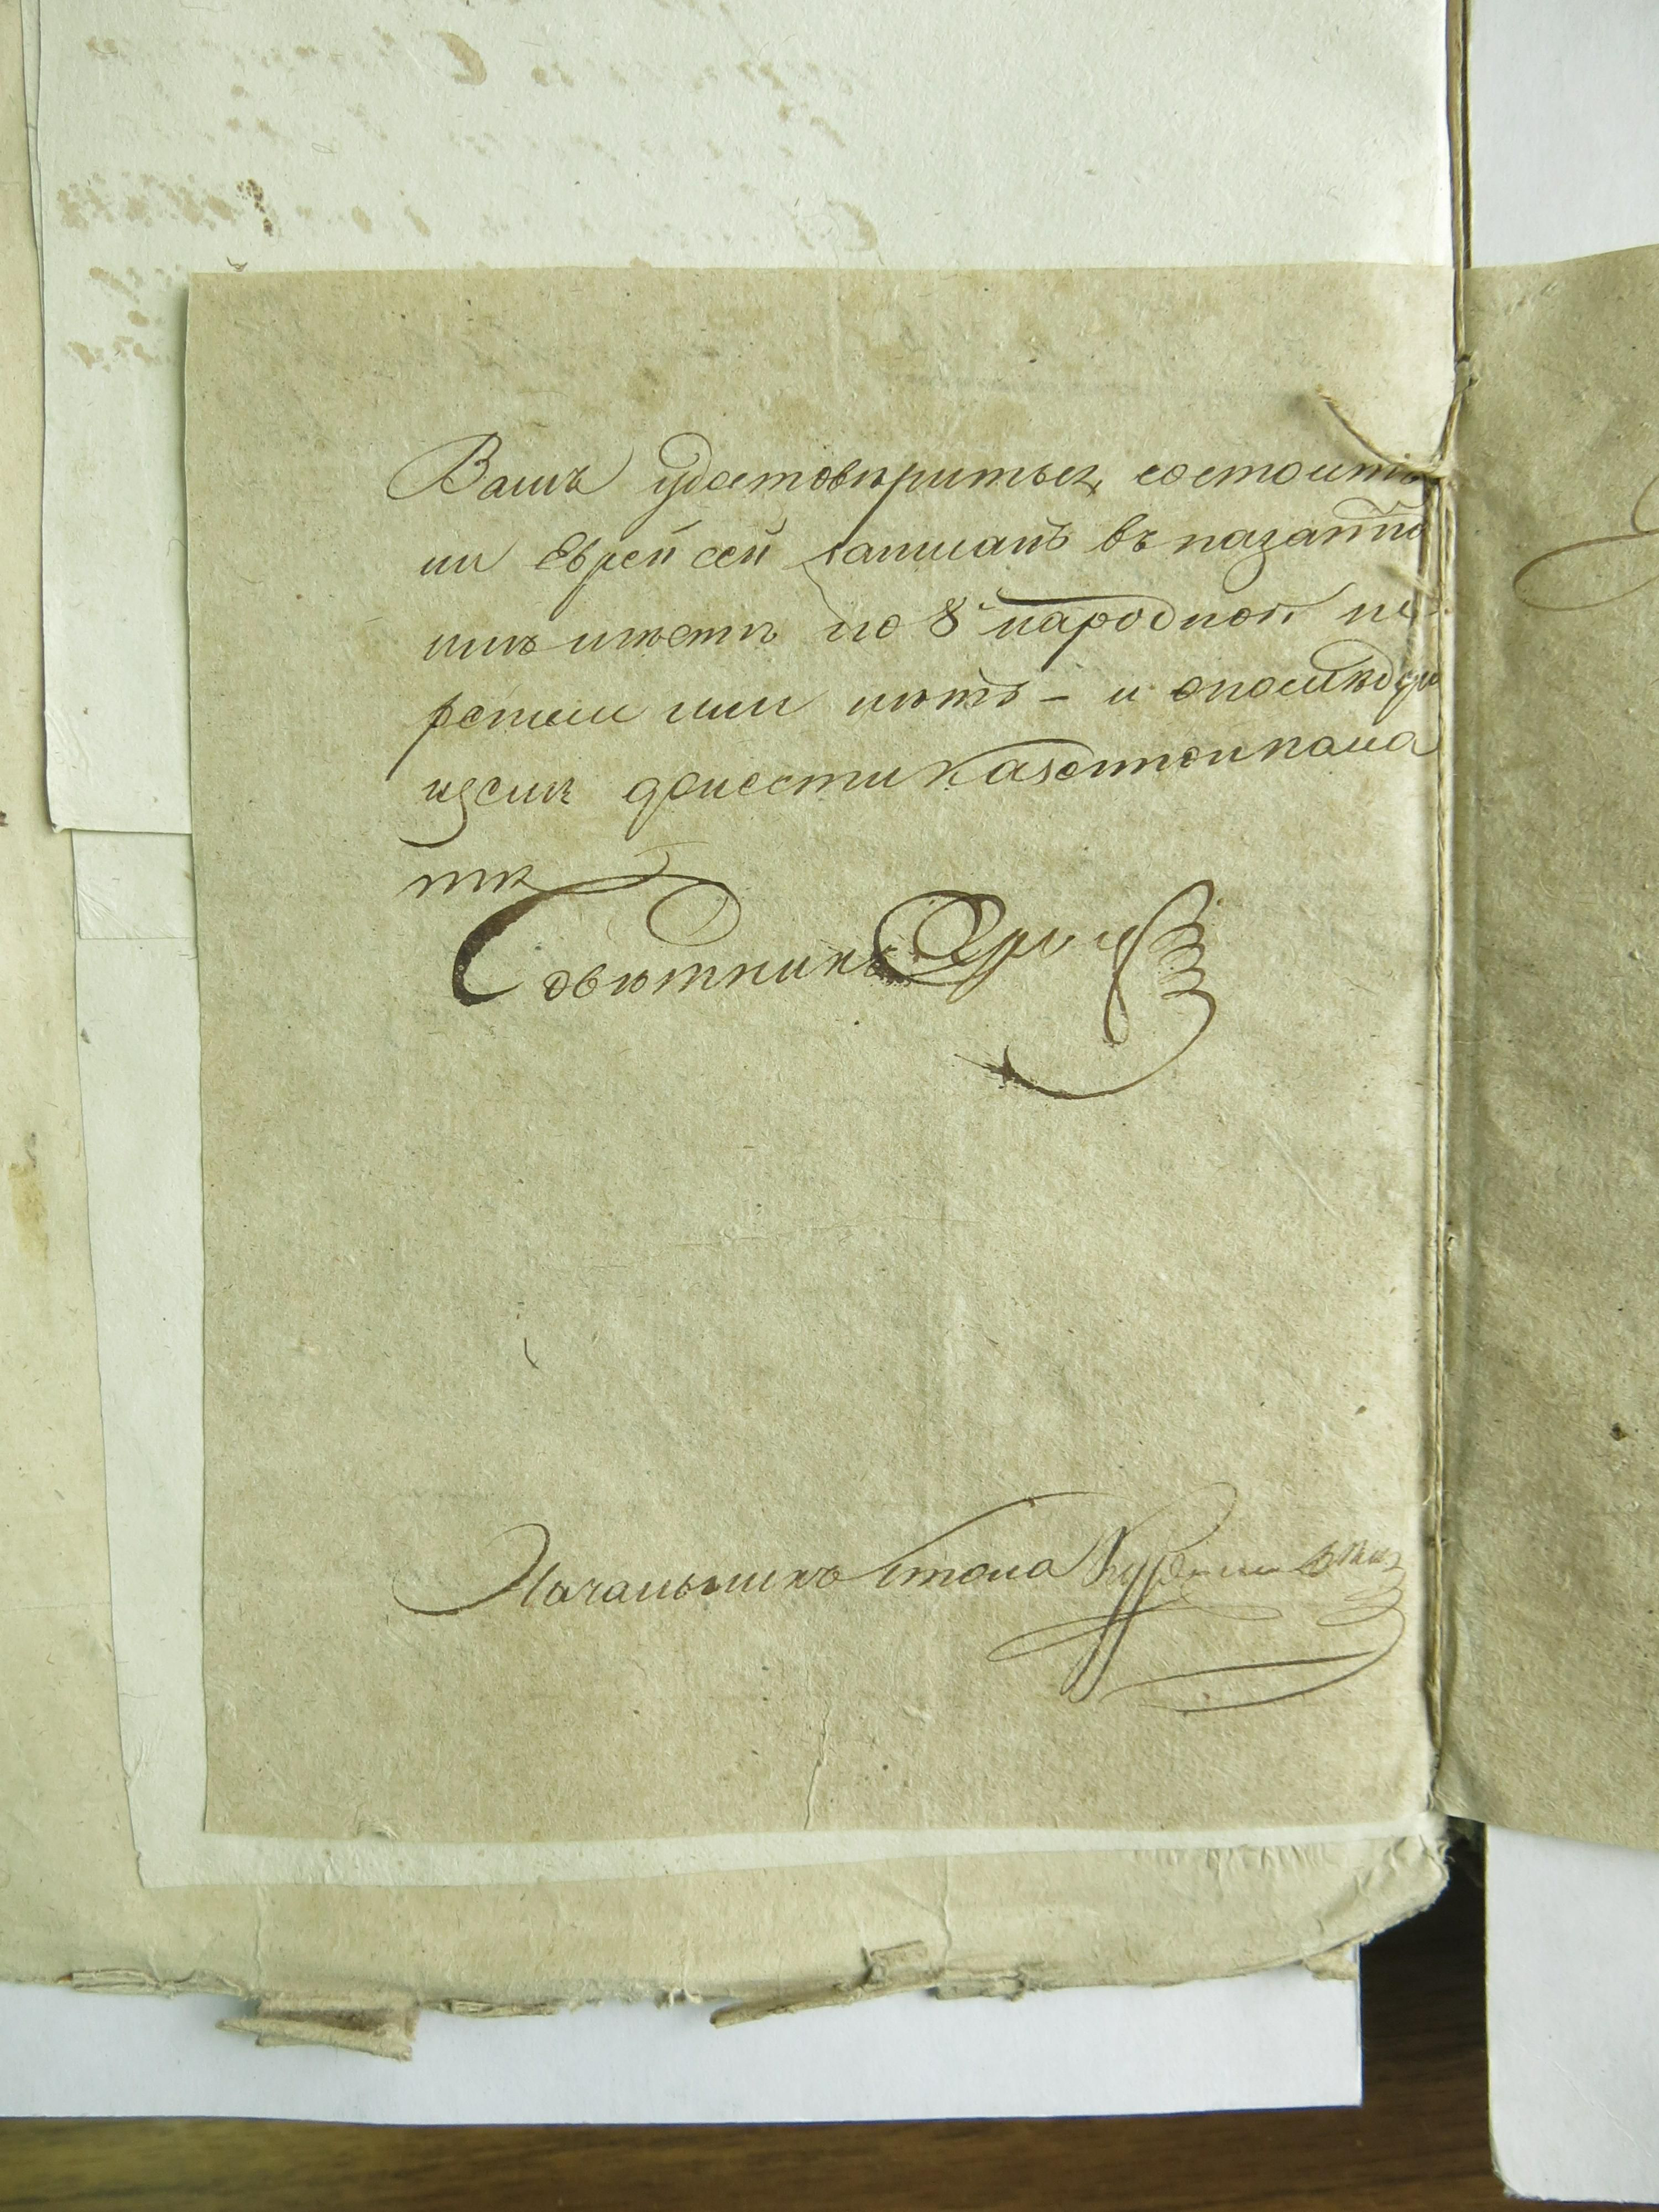 Вамъ удостовѣриться, состоитъ
ли Еврей сей записанъ въ
мѣстѣ по 8 народной пе-
реписи или нѣтъ – и о послѣдую
щемъ донести Казенной пала
тѣ
Совѣтникъ
Начальникъ Стола